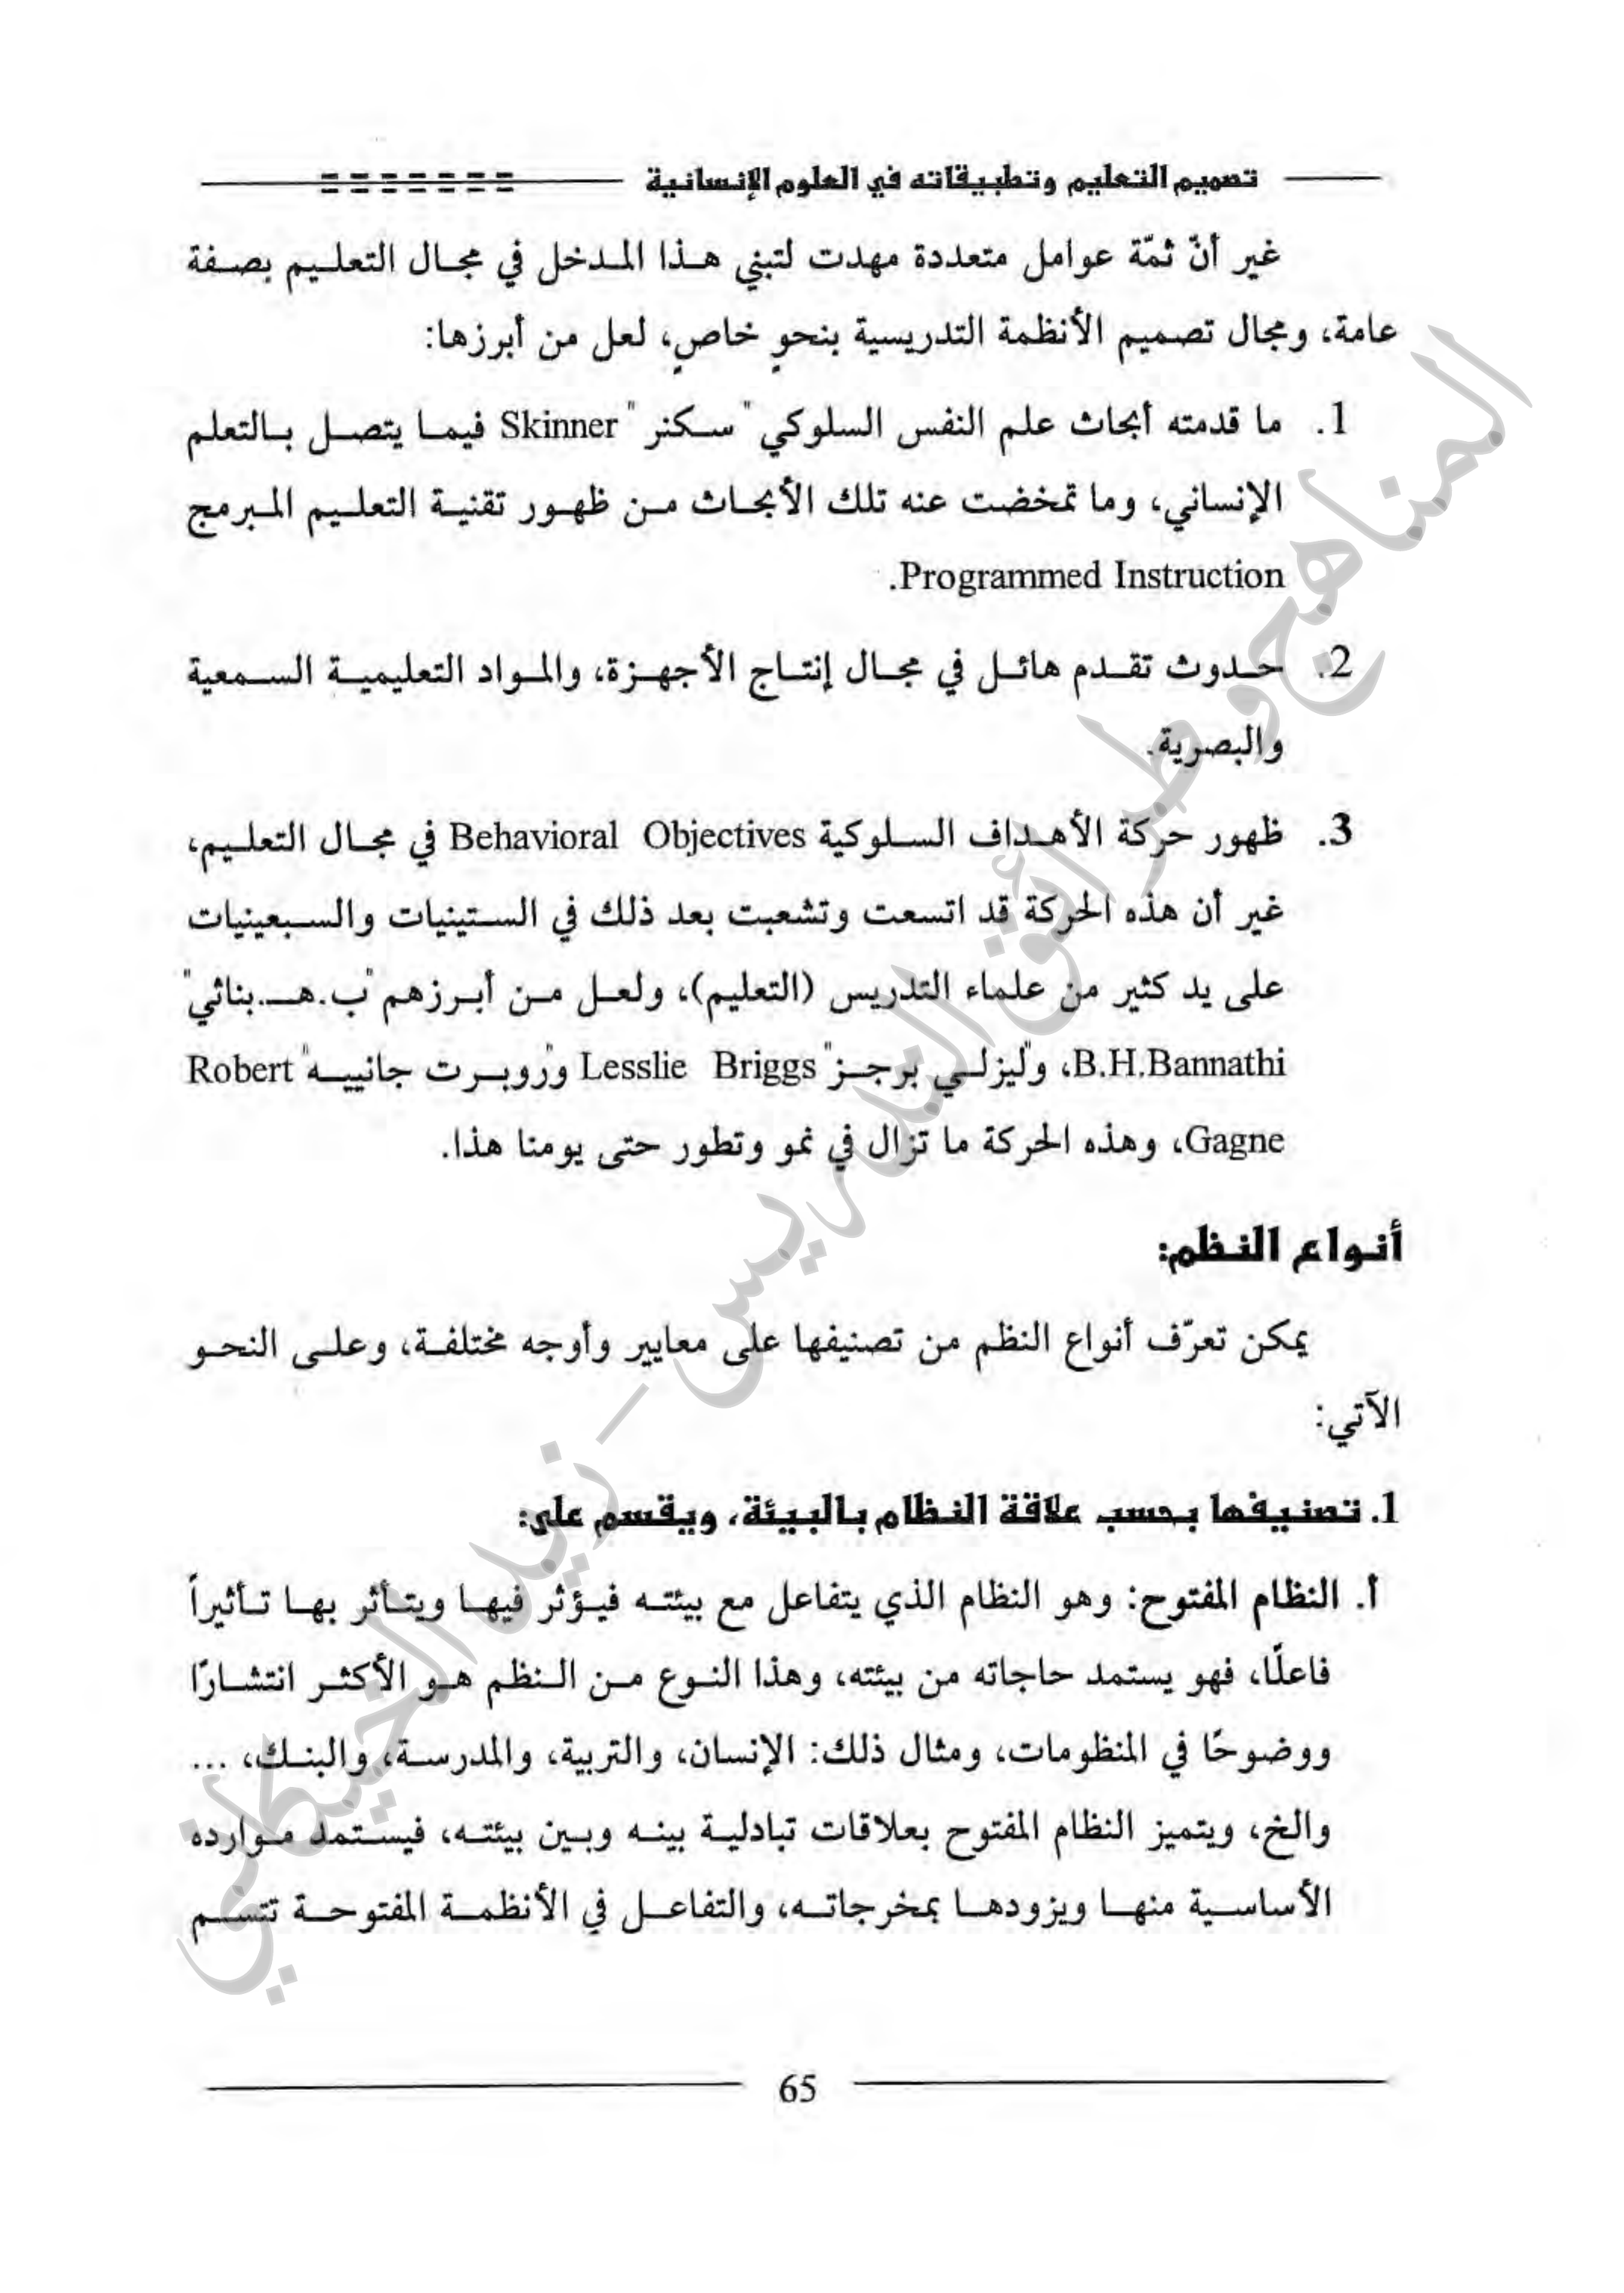 تصميم التعليم وتطبيقاته في العلوم الإنسانية
غير أنّ ثمّة عوامل متعددة مهدت لتبني هذا المدخل في مجال التعليم بصفة
عامة، ومجال تصميم الأنظمة التدريسية بنحوٍ خاصٍ، لعل من أبرزها:
1. ما قدمته أبحاث علم النفس السلوكي "سكنر" Skinner فيما يتصل بالتعلم
الإنساني، وما تمخضت عنه تلك الأبحاث من ظهور تقنية التعليم المبرمج
Programmed Instruction.
2. حدوث تقدم هائل في مجال إنتاج الأجهزة، والمواد التعليمية السمعية
والبصرية.
3. ظهور حركة الأهداف السلوكية Behavioral Objectives في مجال التعليم،
غير أن هذه الحركة قد اتسعت وتشعبت بعد ذلك في الستينيات والسبعينيات
على يد كثير من علماء التدريس (التعليم)، ولعل من أبرزهم "ب.هـ.بناثي"
B.H.Bannathi، و"ليزلي برجز" Lesslie Briggs و"روبرت جانييه" Robert
Gagne، وهذه الحركة ما تزال في نمو وتطور حتى يومنا هذا.
أنواع النظم:
يمكن تعرّف أنواع النظم من تصنيفها على معايير وأوجه مختلفة، وعلى النحو
الآتي:
1. تصنيفها بحسب علاقة النظام بالبيئة، ويقسم على:
أ. النظام المفتوح: وهو النظام الذي يتفاعل مع بيئته فيؤثر فيها ويتأثر بها تأثيراً
فاعلًا، فهو يستمد حاجاته من بيئته، وهذا النوع من النظم هو الأكثر انتشارًا
ووضوحًا في المنظومات، ومثال ذلك: الإنسان، والتربية، والمدرسة، والبنك، ...
والخ، ويتميز النظام المفتوح بعلاقات تبادلية بينه وبين بيئته، فيستمد موارده
الأساسية منها ويزودها بمخرجاته، والتفاعل في الأنظمة المفتوحة تتسم
65
المناهج وطرائق التدريس - زيد الخيكاني